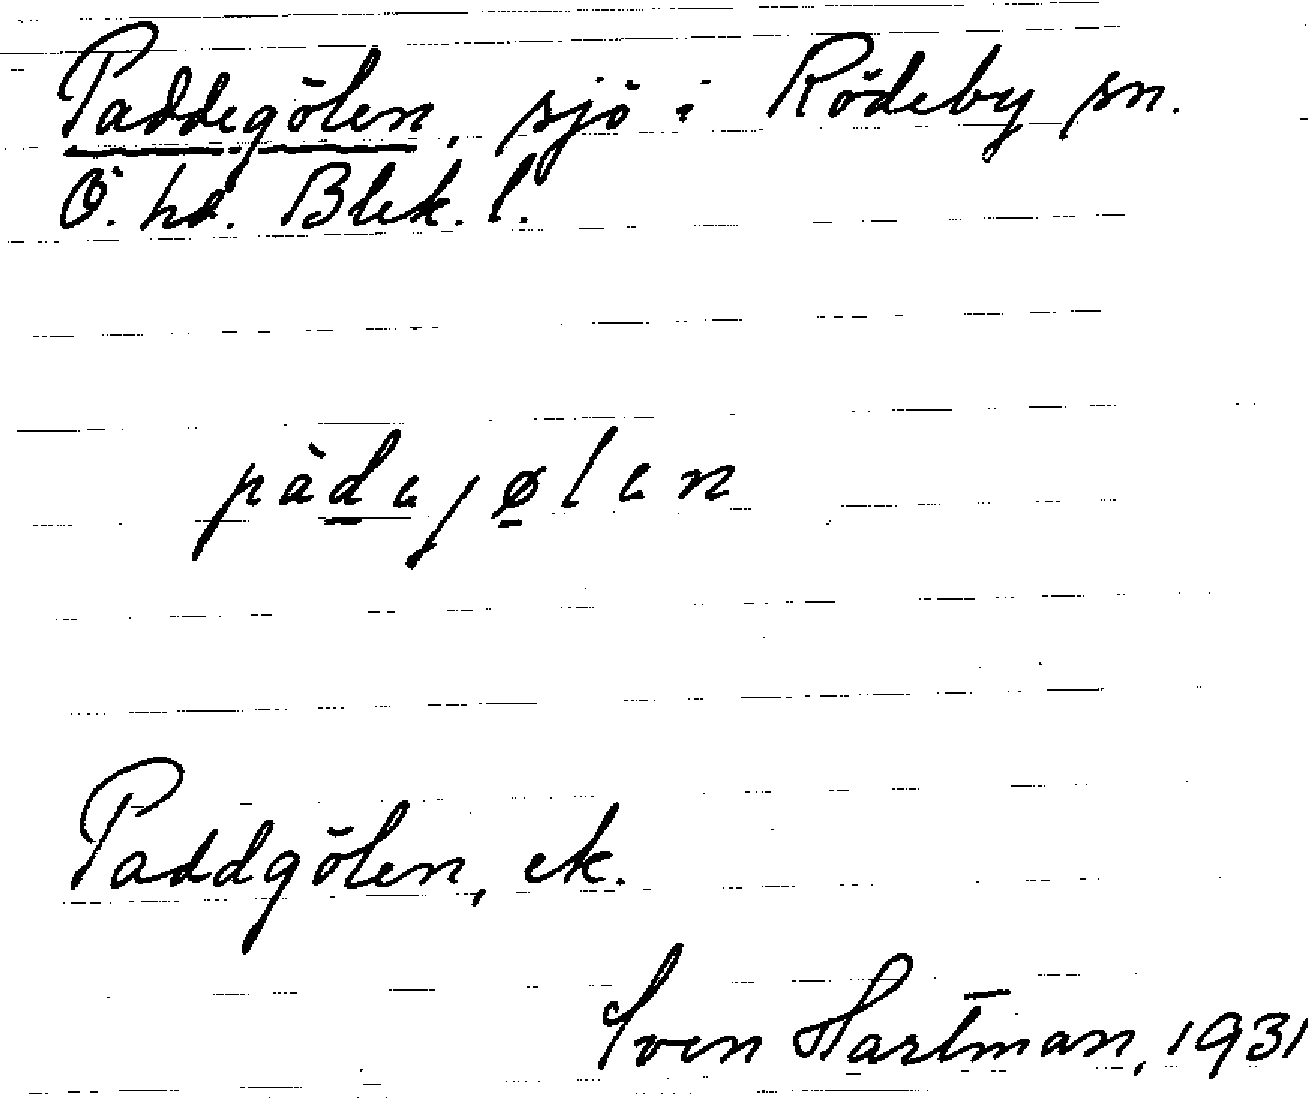 Paddegölen, sjö i Rödeby sn.
Ö. hd. Blek. l.
pàdejølen
Paddgölen, ek.
Sven Hartman, 1931